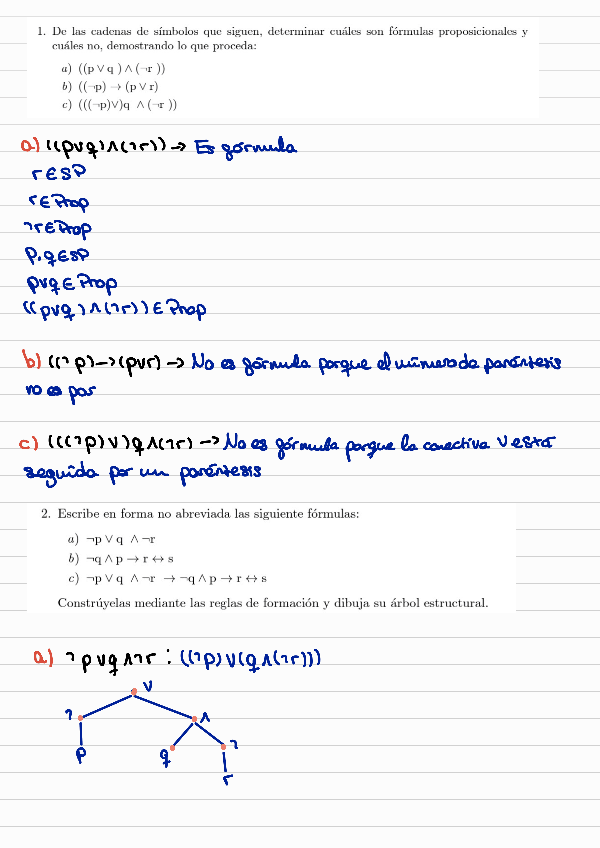 1. De las cadenas de símbolos que siguen, determinar cuáles son fórmulas proposicionales y
cuáles no, demostrando lo que proceda:
a) ((p ∨ q ) ∧ (¬r ))
b) ((¬p) → (p ∨ r)
c) (((¬p)∨)q ∧ (¬r ))
a) ((p∨q)∧(¬r)) → Es fórmula
r ∈ SP
r ∈ Prop
¬r ∈ Prop
p,q ∈ SP
p∨q ∈ Prop
((p∨q)∧(¬r)) ∈ Prop
b) ((¬p)→(p∨r) → No es fórmula porque el número de paréntesis
no es par
c) (((¬p)∨)q∧(¬r) → No es fórmula porque la conectiva ∨ esta
seguida por un paréntesis
2. Escribe en forma no abreviada las siguiente fórmulas:
a) ¬p ∨ q ∧ ¬r
b) ¬q ∧ p → r ↔ s
c) ¬p ∨ q ∧ ¬r → ¬q ∧ p → r ↔ s
Constrúyelas mediante las reglas de formación y dibuja su árbol estructural.
a) ¬p∨q∧¬r : ((¬p)∨(q∧(¬r)))
∨
¬ ∧
p q ¬
r